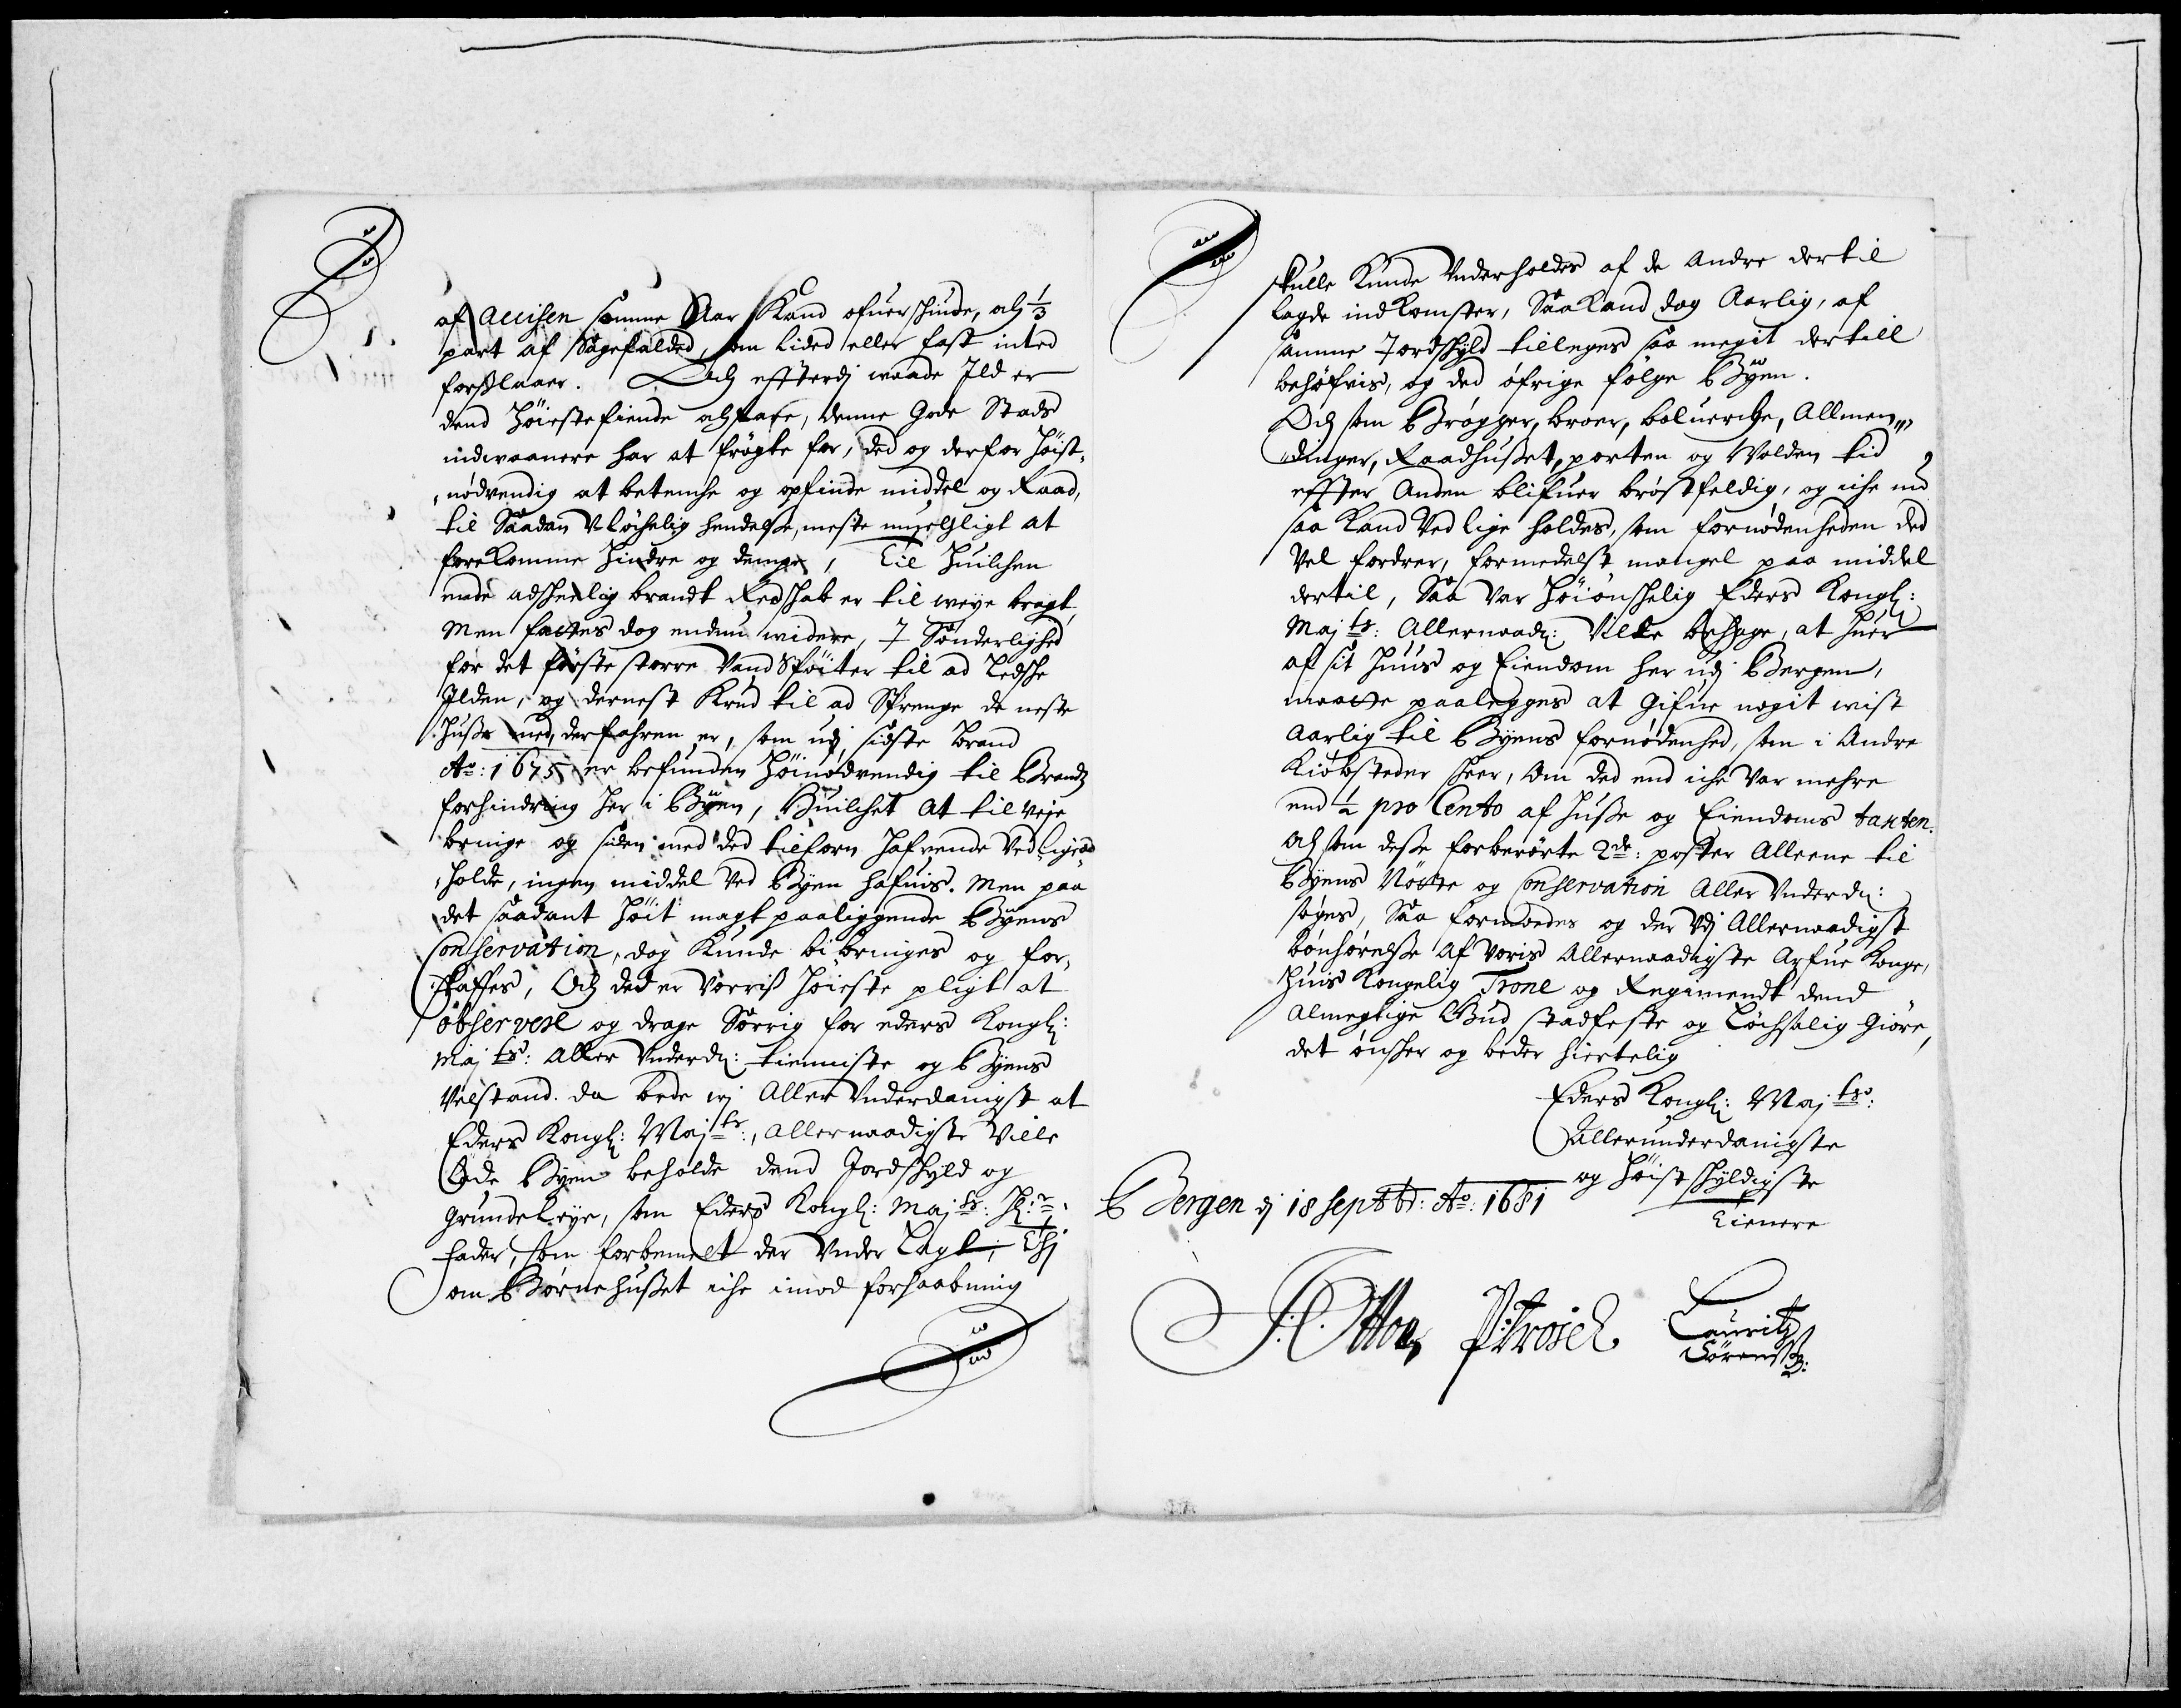 af Accisen somme Aar Kand ofuerskiude, och 1/3
part af Sagefalded, som lided eller fast inted
forslaaer. Och effterdj waade Ild er
dend Høieste fiende och fare, denne Gode Stads
indwaanere har at frøgte for, ded og derfor høist
nødvendig at betenche og opfinde middel og Raad,
til Saadan Vløchelig hendelsse, meste mueligt at
forekomme hindre og dempe, Til Huilchen
ende adschellig brandt Redschab er til weye bragt,
Men fattes dog endnu widere, I Sønderlighed
for det første større Vand Spøiter til ad Ledsche
Ilden, og dernest Krud til ad Sprenge de neste
Husse ned, derfohren er, som udj sidste Brand
Ao: 1675 er befunden Høinødvendig til Brandz
forhindring her i Byen, Huilchet at til veje
bringe og siden med ded tilforn hafvende Ved lige ad
holde, ingen middel ved Byen hafuis. Men paa
det saadant Høit magt paaliggende Byens
Conservation, dog Kunde bi bringes og for
skaffes, Och ded er Vorris høieste pligt at
observere og drage Sørrig for eders Kongl:
Maj ts: Aller Vnderd: tienniste og Byens
Velstand. da bede wj Aller Vnderdanigst at
Eders Kongl: Maj ts:, allernaadigste Ville
Lade Byen beholde dend Jordskyld og
Grundeleye, som Eders Kongl: Maj ts: H: r:
fader, som forbemelt der Vnder Lagt, Thj
om Børnehusset iche imod forhaabning
skulle Kunde Vnderholdes af de Andre dertil
lagde indkomster, Saa Kand dog Aarlig, af
samme Jordskyld tilleges saa megit dertill
behøfvis, og ded øfrige følge Byen.
Och som Brøgger, broer, boluercke, Allmen
dinger, Raadhusset, porten og Wolden tid
effter Anden blifuer brøstfeldig, og iche nu
saa Kand Ved lige holdes, som fornødenheden ded
Vel fordrer, formedelst mangel paa middel
dertil, Saa Var Høiønschelig Eders Kongl:
Maj ts: Allernaad: Ville behage, at huer
af sit Huus og Eiendom her udj Bergen,
maatte paalegges at Gifue nogit wist
Aarlig til Byens fornødenhed, som i Andre
Kiøbsteder scheer, om ded end iche Var mehre
end 1/2 pro Cento af Husse og Eiendoms taxten.
Och som desse forberørte 2de: poster Alleene til
Byens Nøtte og Conservation Aller Vnderd:
søges, Saa formodes og der Vdj Allernaadigst
bønhørelsse af voris Allernaadigste Arfue Konge,
Huis Kongelig Trone og Regimendt dend
Almegtige Gud stadfeste og Løchsalig Giøre,
det ønscher og beder hiertelig
Eders Kongl: Maj ts:
Allerunderdanigste
og høist schyldigste
Tienere
Bergen dj 18 Septbr: Ao: 1681
Lauritz
Sørenss: